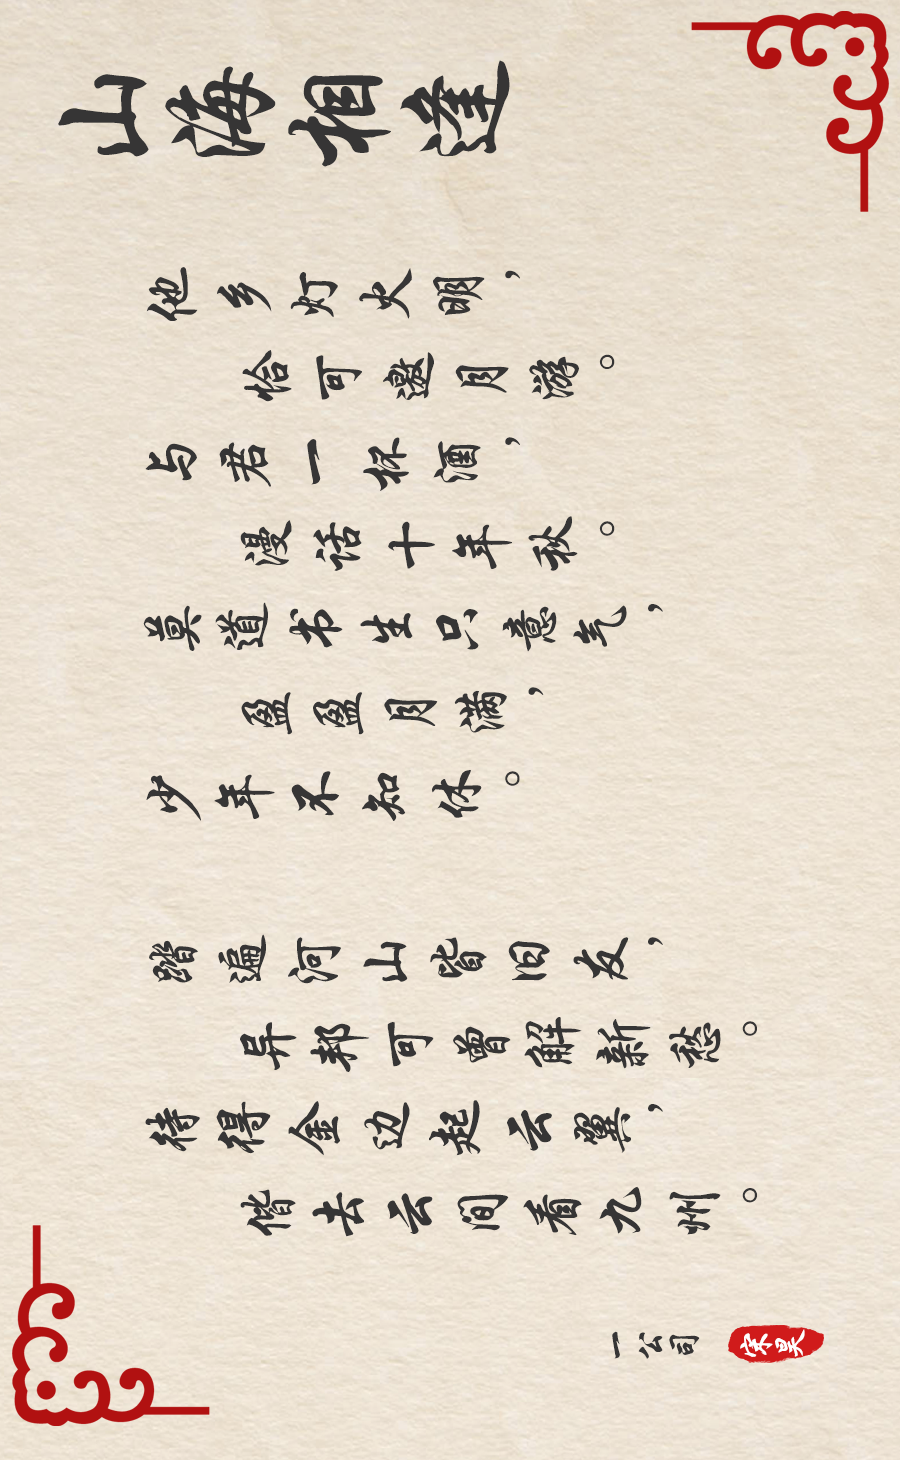 山海相逢
他乡灯火明，
恰可邀月游。
与君一杯酒，
漫话十年秋。
莫道书生只意气，
盈盈月满，
少年不知休。
踏遍河山皆旧友，
异邦可曾解新愁。
待得金边起云翼，
偕去云间看九州。
一公司
宋昊